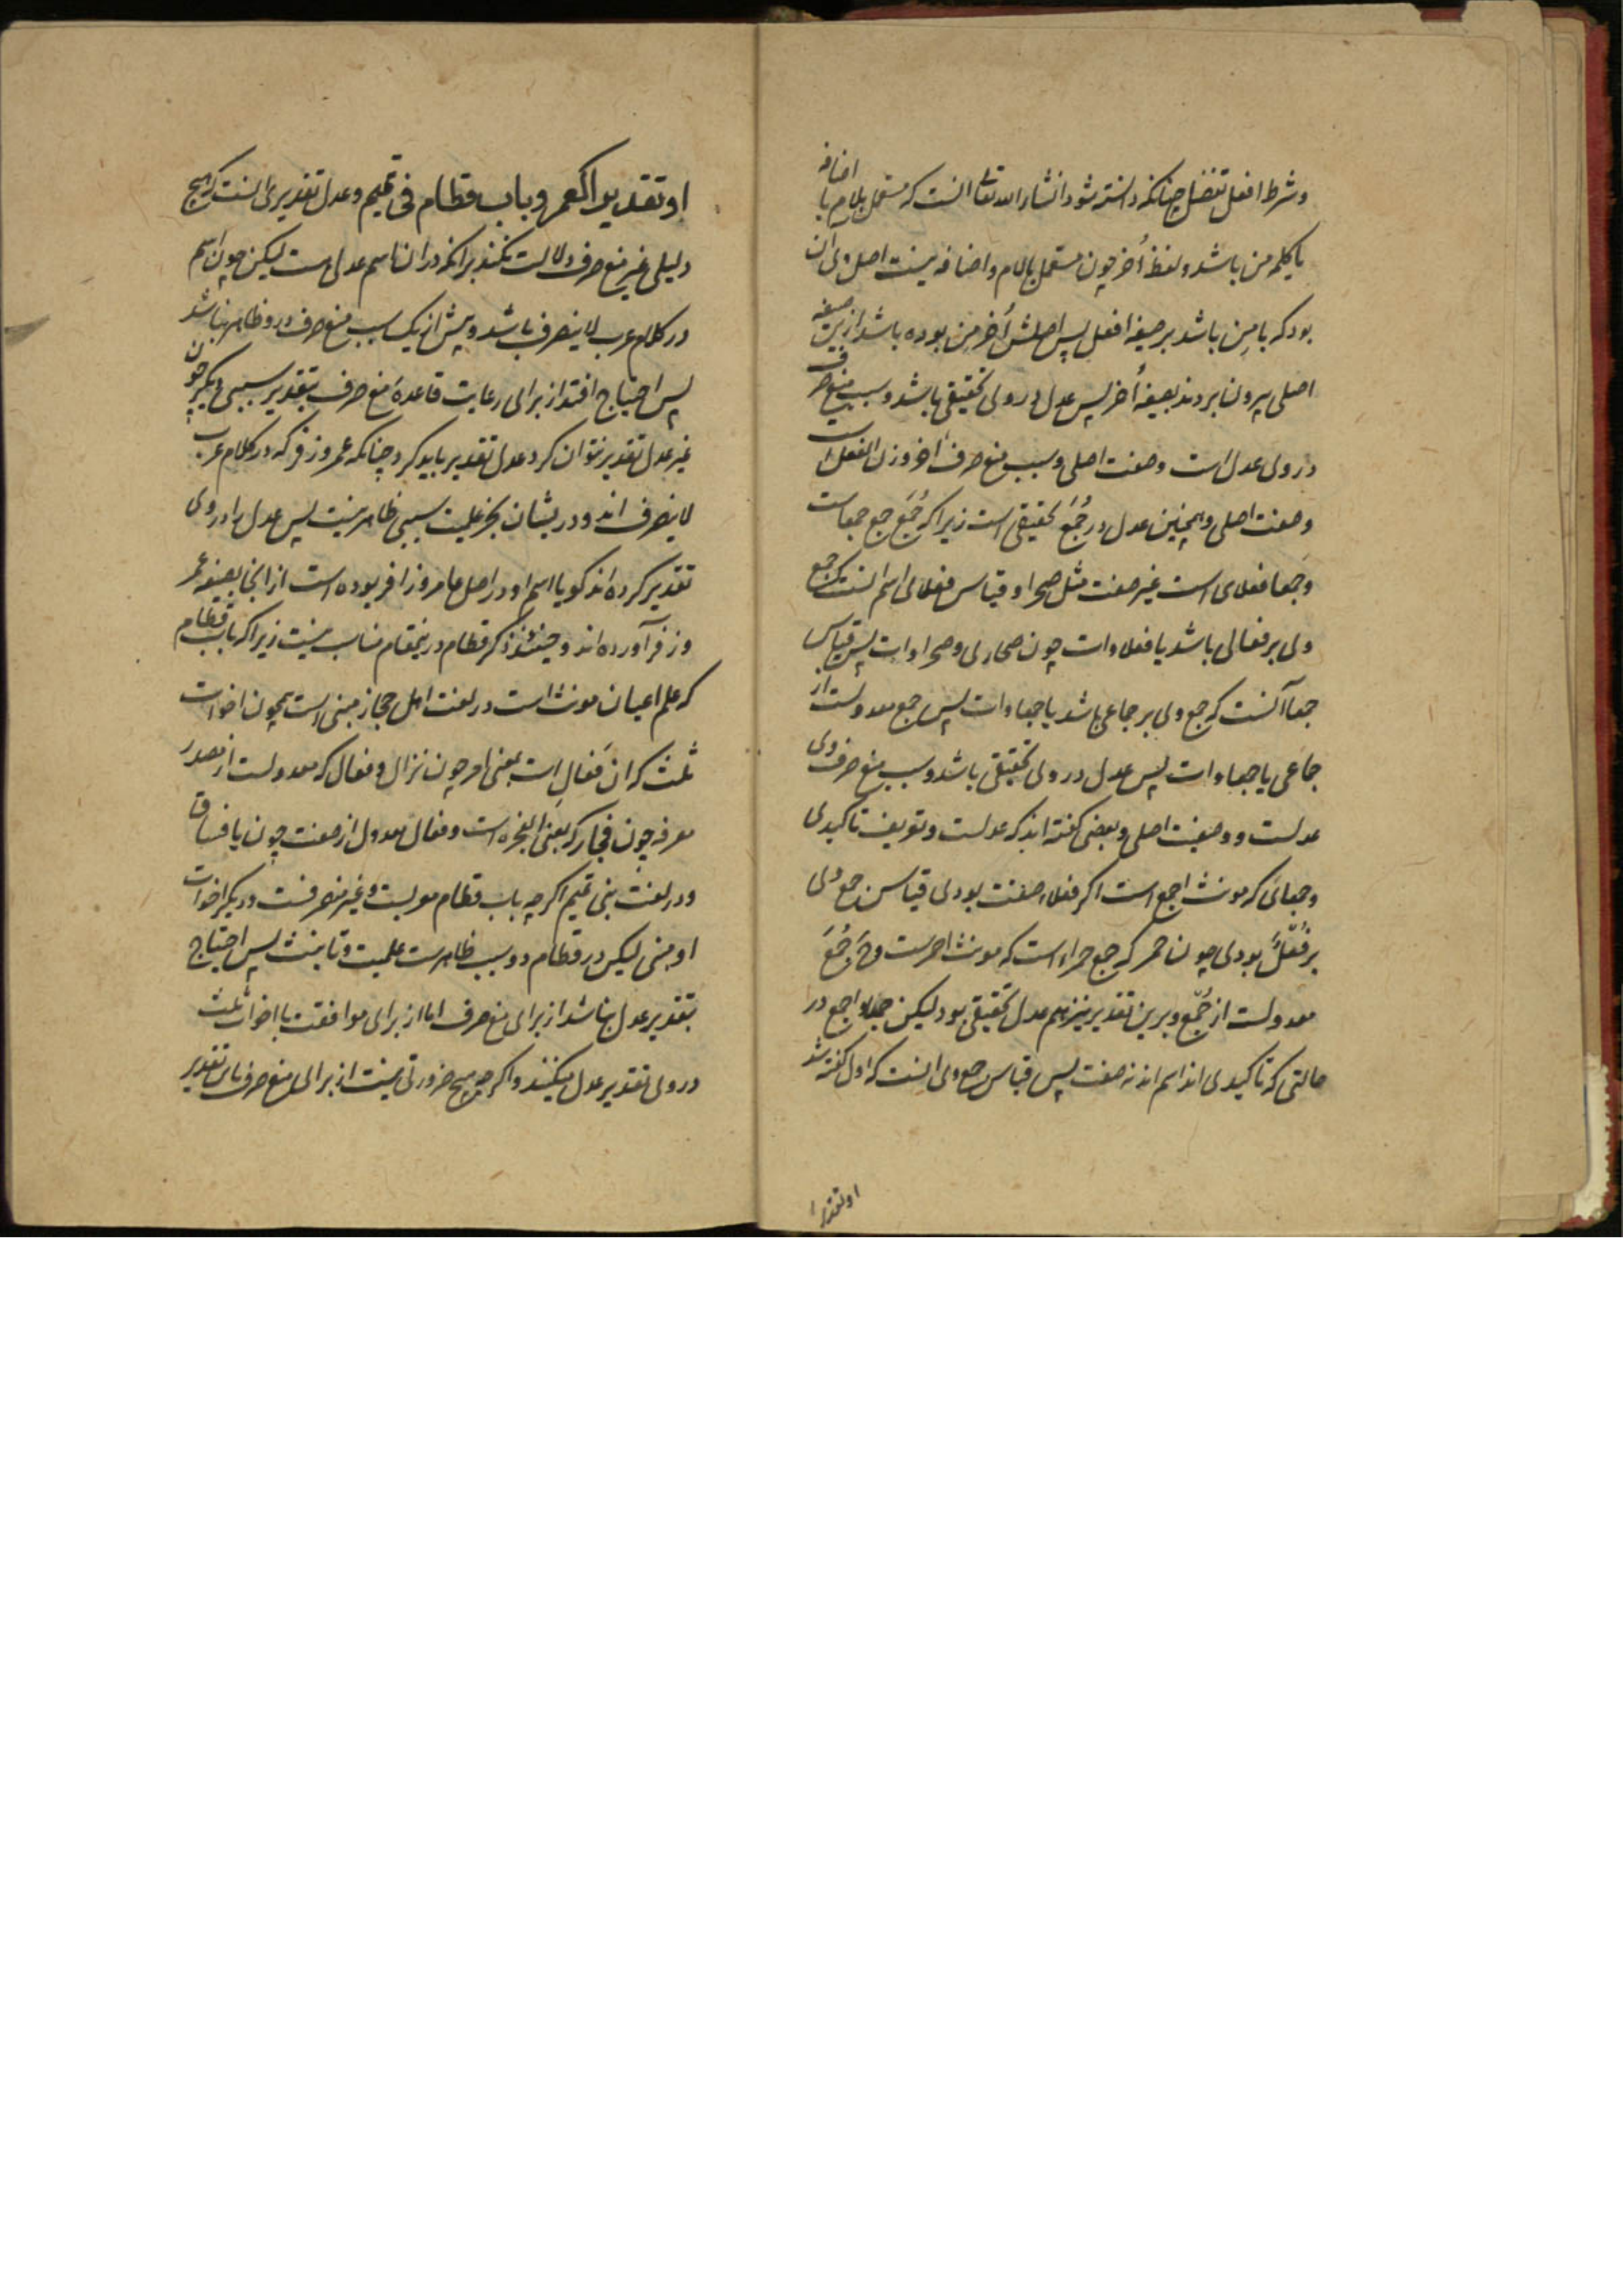 وشرط افعل تفضیل چنانکه دانسته شود انشاء الله تعالی انست که مستعمل بلام یا اضافه
یا کلمه من باشد و لفظ اُخر چون مستعمل بلام و اضافه نیست اصل وی ان
بود که با مِن باشد بر صیغه افعل پس اصلش اٰخر من بوده باشد از ین صیغه
اصلی بیرون بردند بصیغه اُخر پس عدل در وی تحقیقی باشد و سبب منع صرف
در وی عدل است و صفت اصلی و سبب منع صرف اٰخر وزن الفعل است
و صفت اصلی و همچنین عدل در جُمَع تحقیقی است زیراکه جُمَع جمع جمعا است
و جمعا فعلای است غیر صفت مثل صحرا و قیاس فعلای اسم انست که جمع
وی بر فعالی باشد یا فعلاوات چون صحاری و صحراوات پس قیاس
جمعا آنست که جمع وی بر جماعی باشد یا جمعاوات پس جمع معدولست از
جماعی یا جمعاوات پس عدل در وی تحقیقی باشد و سبب منع صرف وی
عدلست و وصفیت اصلی و بعضی گفته اند که عدلست و تعریف تاکیدی
و جمعائی که مونث اجمع است اکر فعلاء صفت بودی قیاس جمع وی
بر فُعْل بودی چون حمر که جمع حمراء است که مونث احمرست و جُمَع
معدولست از جُمْع و برین تقدیر نیز هم عدل تحقیقی بود لیکن جمعاء و اجمع در
حالتی که تاکیدی اند اسم اند نه صفت پس قیاس جمع وی انست که اول کفته شد
او تقدیرا
او تقدیرا کعمر و باب قطام فی تمیم و عدل تقدیری انست که هیچ
دلیلی غیر منع صرف دلالت نکند برانکه دران اسم عدل هست لیکن چون اسم
در کلام عرب لا ینصرف باشد و بیش از یک سبب منع صرف درو ظاهر نباشد
پس احتیاج افتد از برای رعایت قاعدهٔ منع صرف بتقدیر سببی دیکر چون
غیر عدل تقدیر نتوان کرد عدل تقدیر باید کرد چنانکه عمر و زفر که در کلام عرب
لا ینصرف اند و در یشان بجز علمیت سببی ظاهر نیست پس عدل را در وی
تقدیر کرده اند کویا اسم او در اصل عامر و زافر بوده است از انجا بصیغه عمر
و زفر آورده اند و حینئذ ذکر قطام درینمقام مناسب نیست زیراکه باب قطام
که علم اعیان مونث است در لغت اهل حجاز مبنی است همچون اخوات
ثلث که ان فَعال است بمعنی امر چون نزال و فعال که معدولست از مصدر
معرفه چون فجار که بمعنی الفجره است و فعال معدول از صفت چون یا فساق
و در لغت بنی تمیم اکر چه باب قطام معربست و غیر منصرفست و دیکر اخوات
او مبنی لیکن در قطام دو سبب ظاهرست علمیت و تانیث پس احتیاج
بتقدیر عدل نباشد از برای منع صرف اما از برای موافقت با اخوات ثلث
در وی تقدیر عدل میکنند و اکر چه هیچ ضرورتی نیست از برای منع صرف باین تقدیر